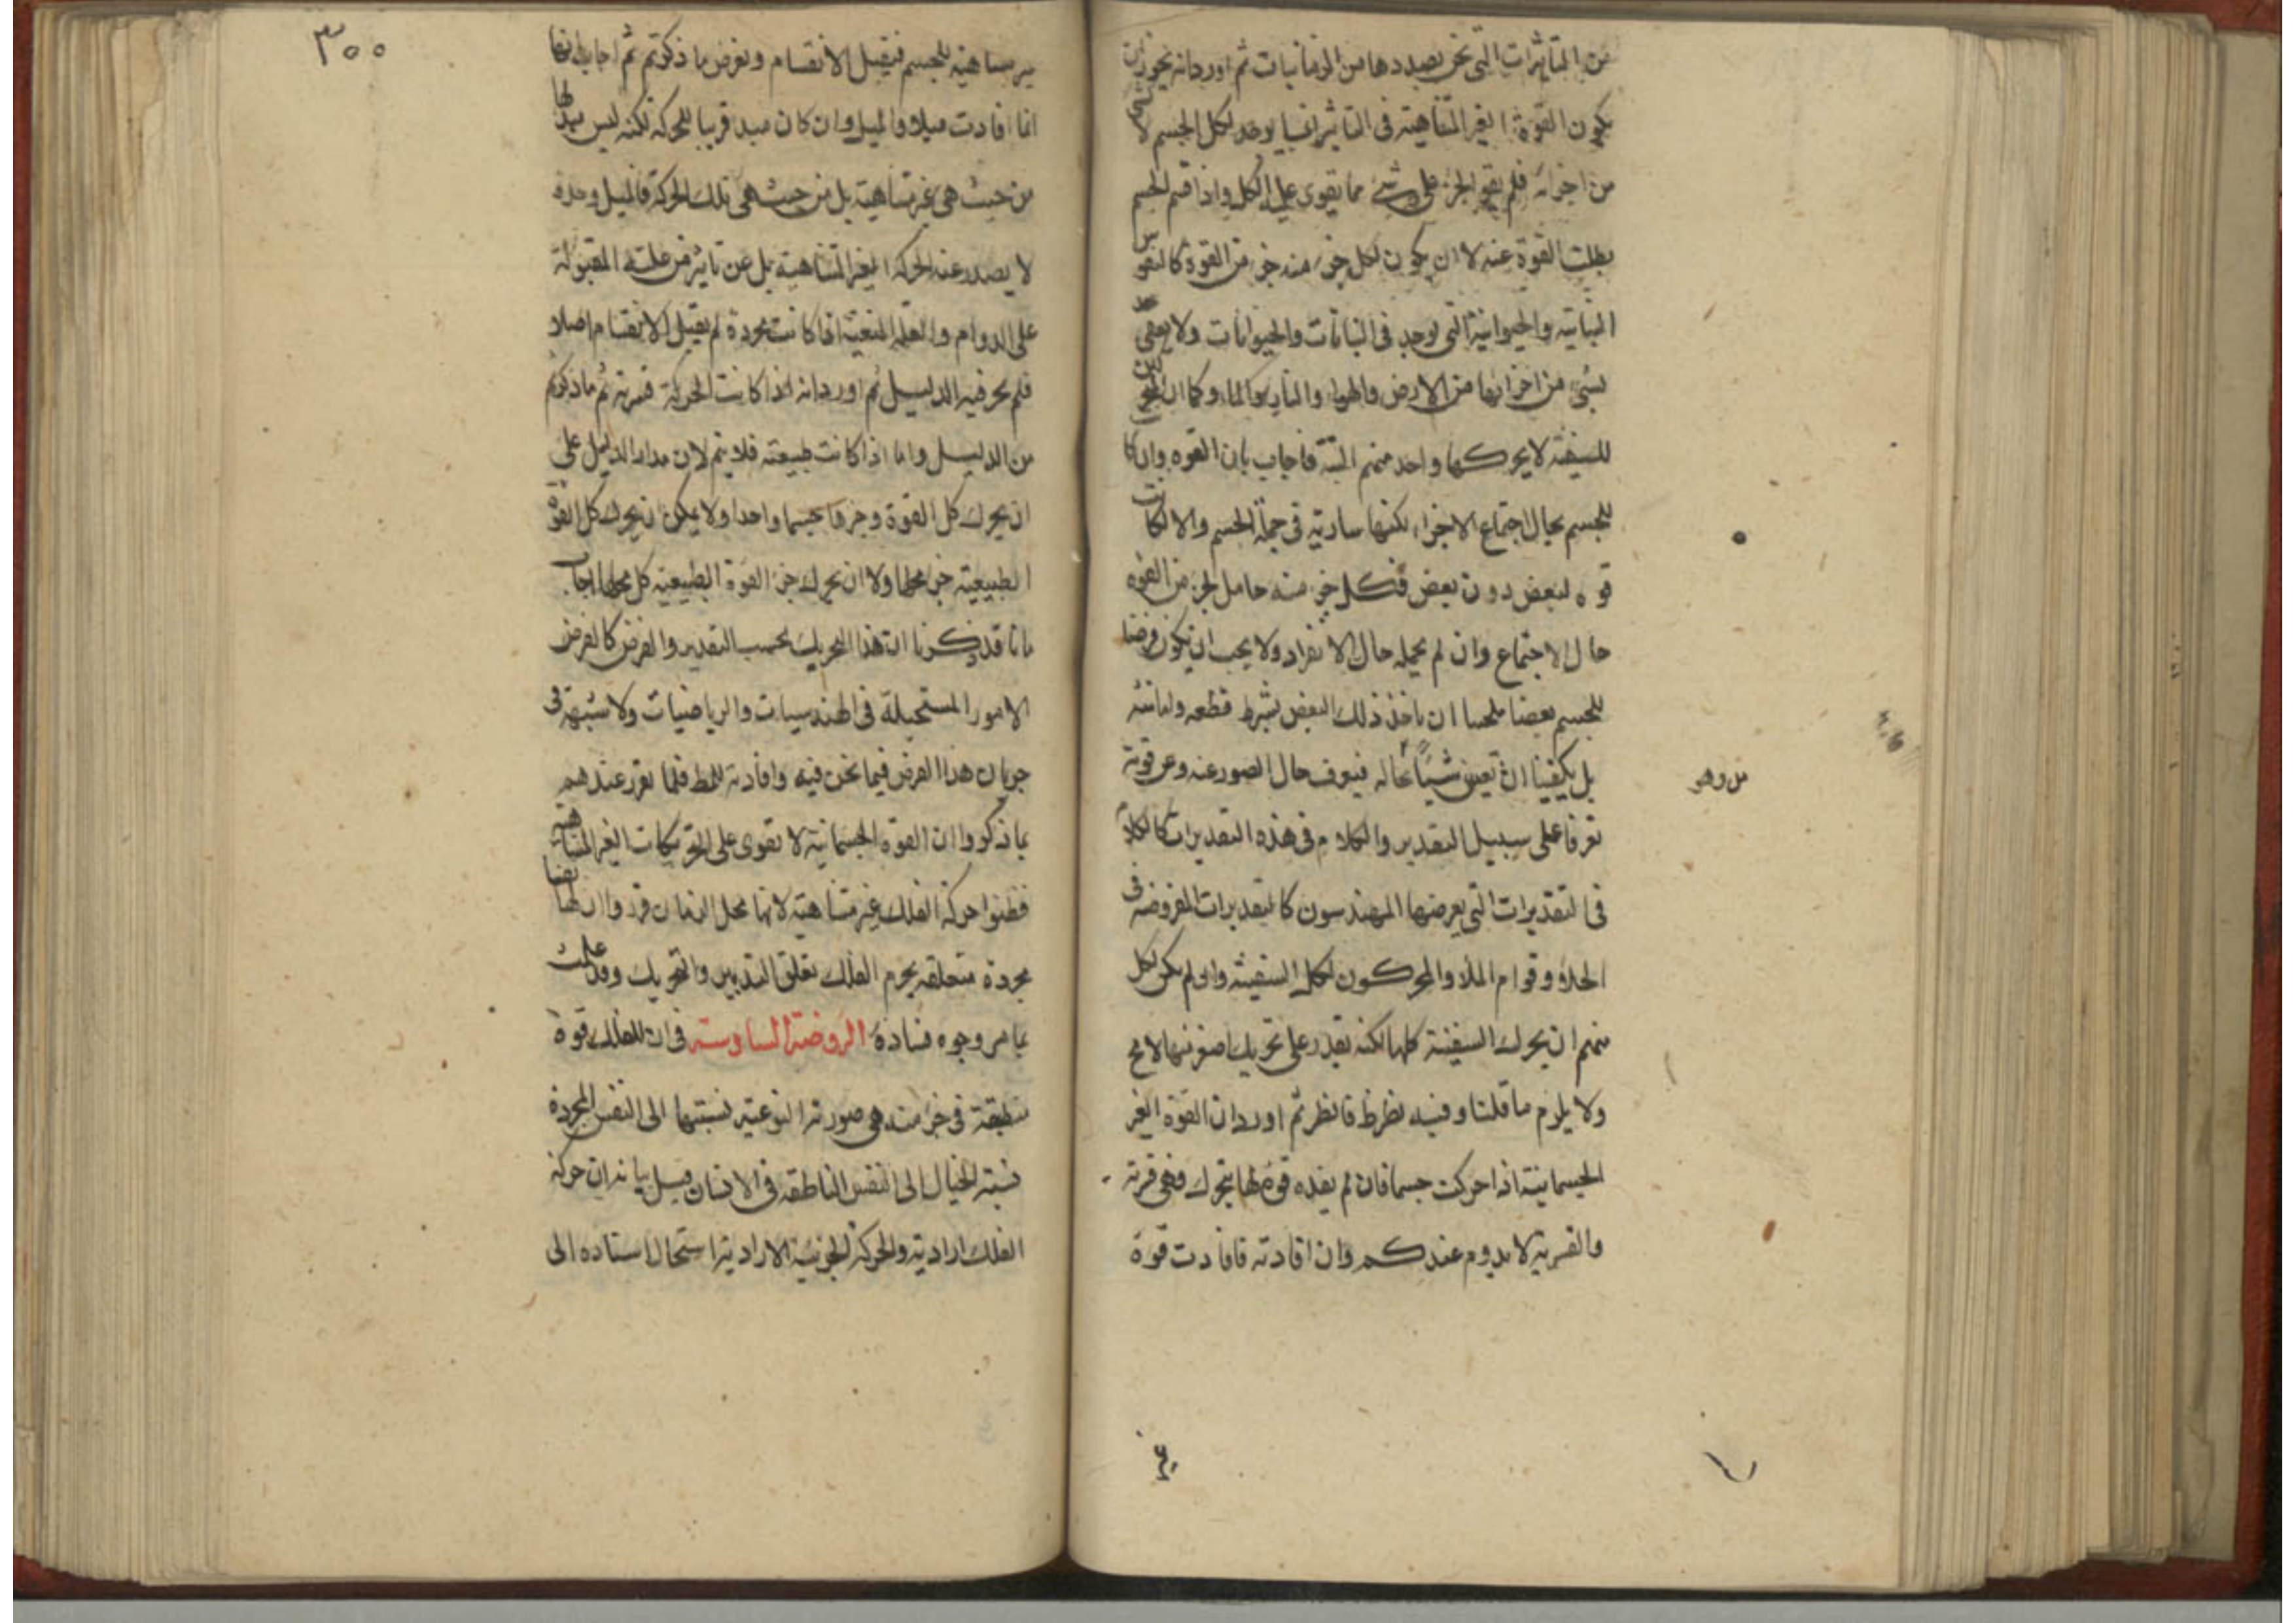 من التأثرات التي نحن بصددها من الزمانيات ثم اورد انه يجوز ان
يكون القوة الغير المتناهية في التأثير انما يوجد لكل الجسم لا
من اجزائه فلم يقو الجزء على شيء مما يقوى على الكل واذا قسم الجسم
بطلت القوة عنه لا ان يكون لكل جزء منه جزء من القوة كالقوى
النباتية والحيوانية التي توجد في النباتات والحيوانات ولا
لشيء من اجزائها من الارض والهواء والنار والماء وكما ان المحركين
للسفينة لا يحركها واحد منهم البتة فاجاب بان القوة وان كانت
للجسم بحال اجتماع الاجزاء لكنها سارية في جملة الجسم والا لكانت
قوة لبعض دون بعض فكل جزء منه حامل لجزء من القوة
حال الاجتماع وان لم يحمله حال الانفراد ولا يجب ان يكون فرضنا
للجسم بعضا ملجما ان ناخذ ذلك البعض بشرط قطعه وابانته
بل يكفينا ان نعين شيئا بحاله فيعرف حال الصور عنه وعن قوته
من وهو
تعرفا على سبيل التقدير والكلام في هذه التقديرات كالكلام
في التقديرات التي يعرضها المهندسون كالتقديرات المفروضة في
الخلاء وقوام الملاء والمحركون لكل السفينة وان لم يكن لكل
منهم ان يحرك السفينة كلها لكنه يقدر على تحريك اصغر منها لا مح
ولا يلزم ما قلنا وفيه نظر فانظر ثم اورد ان القوة الغير
الجسمانية اذا حركت جسما فان لم يفده قوة بها يتحرك فهي قسرية
والقسرية لا يدوم عندكم وان افادته فافادت قوة
٣٠٠
سر متناهية للجسم فيقبل الانقسام ونفرض ما ذكرتم ثم اجاب بانها
انما افادت ميلا والميل وان كان مبدء قريبا للحركة لكنه ليس مبدء لها
من حيث هي غير متناهية بل من حيث هي تلك الحركة فالميل وحده
لا يصدر عنه الحركة الغير المتناهية بل عن تأثير من علته المقبولة
على الدوام والعلة المنعية اذا كانت مجردة لم يقبل الانقسام اصلا
فلم يجر فيه الدليل ثم اورد انه اذا كانت الحركة قسرية ثم ما ذكرتم
من الدليل واما اذا كانت طبيعية فلا يتم لان مدار الدليل على
ان يحرك كل القوة وجزءها جسما واحدا ولا يمكن ان يحرك كل القوة
الطبيعية جزء محلها ولا ان يحرك جزء القوة الطبيعية كل محلها اجاب
بانا قد ذكرنا ان هذا التحريك بحسب التقدير والفرض كالفرض
الامور المستحيلة في الهندسيات والرياضيات ولا شبهة في
جريان هذا الفرض فيما نحن فيه وافادته للمط فلما تقرر عندهم
بما ذكروا ان القوة الجسمانية لا تقوى على التحريكات الغير المتناهية
فظنوا حركة الفلك غير متناهية لانها محل الزمان قرروا ان لها نفسا
مجردة متعلقة بجرم الفلك تعلق التدبير والتحريك وقد علمت
بما مر وجوه فساده الروضة السادسة في ان للفلك قوة
منطبعة في جزء منه هي صورته النوعية نسبتها الى النفس المجردة
نسبة الخيال الى النفس الناطقة في الانسان قيل بيانه ان حركة
الفلك ارادية والحركة الجزئية الارادية استحال استناده الى